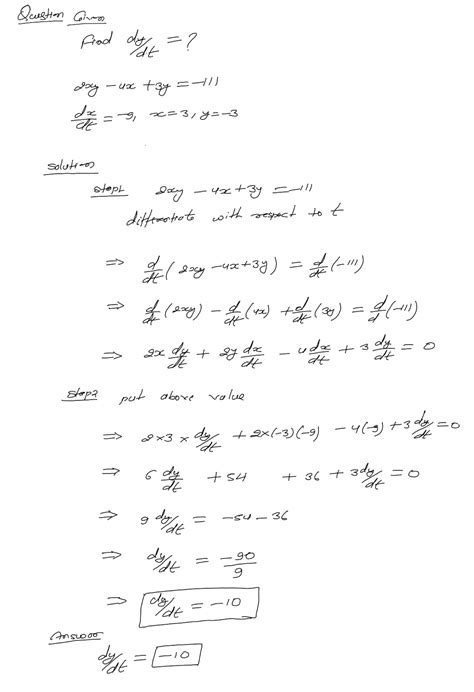 Question Given
Find dy/dt = ?
2xy - 4x + 3y = -111
dx/dt = -9, x = 3, y = -3
Solution
Step1 2xy - 4x + 3y = -111
differentiate with respect to t
⇒ d/dt (2xy - 4x + 3y) = d/dt (-111)
⇒ d/dt (2xy) - d/dt (4x) + d/dt (3y) = d/d (-111)
⇒ 2x dy/dt + 2y dx/dt - 4 dx/dt + 3 dy/dt = 0
Step2 put above value
⇒ 2×3 × dy/dt + 2×(-3)(-9) - 4(-9) + 3 dy/dt = 0
⇒ 6 dy/dt + 54 + 36 + 3 dy/dt = 0
⇒ 9 dy/dt = -54 - 36
⇒ dy/dt = -90/9
⇒ dy/dt = -10
Answer
dy/dt = -10